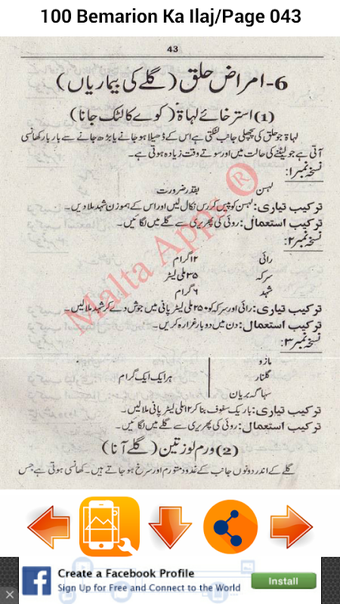 100 Bemarion Ka Ilaj/Page 043
43
6- امراض حلق (گلے کی بیماریاں)
(1) استرخائے لہاۃ (کوے کا لٹک جانا)
لہاۃ جو حلق کی پچھلی جانب لٹکتی ہے اس کے ڈھیلا ہو جانے یا بڑھ جانے سے بار بار کھانسی
آتی ہے جو لیٹنے کی حالت میں اور سوتے وقت زیادہ ہوتی ہے۔
نسخہ نمبر 1:
لہسن بقدر ضرورت
ترکیب تیاری: لہسن کو پیس کر رس نکال لیں اور اس کے ہم وزن شہد ملا دیں۔
ترکیب استعمال: روئی کی پھریری سے گلے میں لگائیں۔
نسخہ نمبر 2:
رائی ۱۲ گرام
سرکہ ۳۵ ملی لیٹر
شہد ۶ گرام
ترکیب تیاری: رائی اور سرکہ کو ۲۵۰ ملی لیٹر پانی میں جوش دے کر شہد ملا لیں۔
ترکیب استعمال: دن میں دو بار غرارہ کریں۔
نسخہ نمبر 3:
مازو
گلنار ہر ایک ایک گرام
سہاگہ بریاں
ترکیب تیاری: باریک سفوف بنا کر ۱۲ ملی لیٹر پانی ملا لیں۔
ترکیب استعمال: روئی کی پھریری سے گلے میں لگائیں۔
(2) ورم لوزتین (گلے آنا)
گلے کے اندر دونوں جانب کے غدود متورم اور سرخ ہو جاتے ہیں۔ کھانسی ہوتی ہے جس
Malta Apps ®
Create a Facebook Profile
Sign Up for Free and Connect to the World
Install